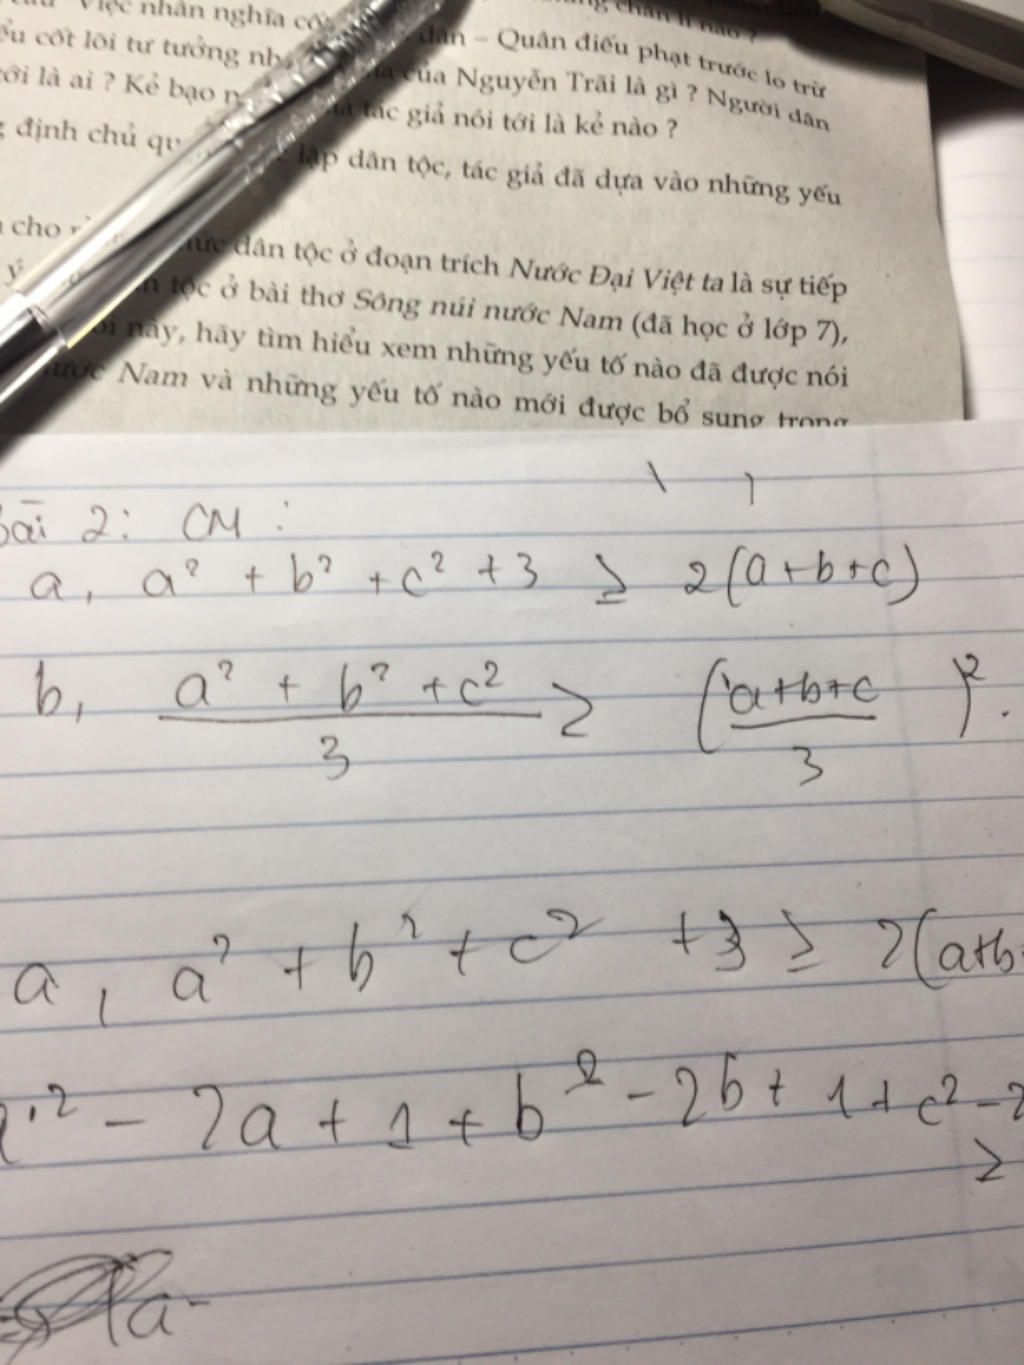 Việc nhân nghĩa
cốt lõi tư tưởng dân – Quân điếu phạt trước lo trừ
tới là ai ? Kẻ bạo của Nguyễn Trãi là gì ? Người dân
tác giả nói tới là kẻ nào ?
định chủ lập dân tộc, tác giả đã dựa vào những yếu
cho dân tộc ở đoạn trích Nước Đại Việt ta là sự tiếp
ý tộc ở bài thơ Sông núi nước Nam (đã học ở lớp 7),
này, hãy tìm hiểu xem những yếu tố nào đã được nói
Nam và những yếu tố nào mới được bổ sung trong
Bài 2: CM :
a, a² + b² + c² + 3 ≥ 2(a+b+c)
b, (a² + b² + c²)/3 ≥ ((a+b+c)/3)².
a, a² + b² + c² + 3 ≥ 2(a+b
a² - 2a + 1 + b² - 2b + 1 + c² - 2
≥
a-